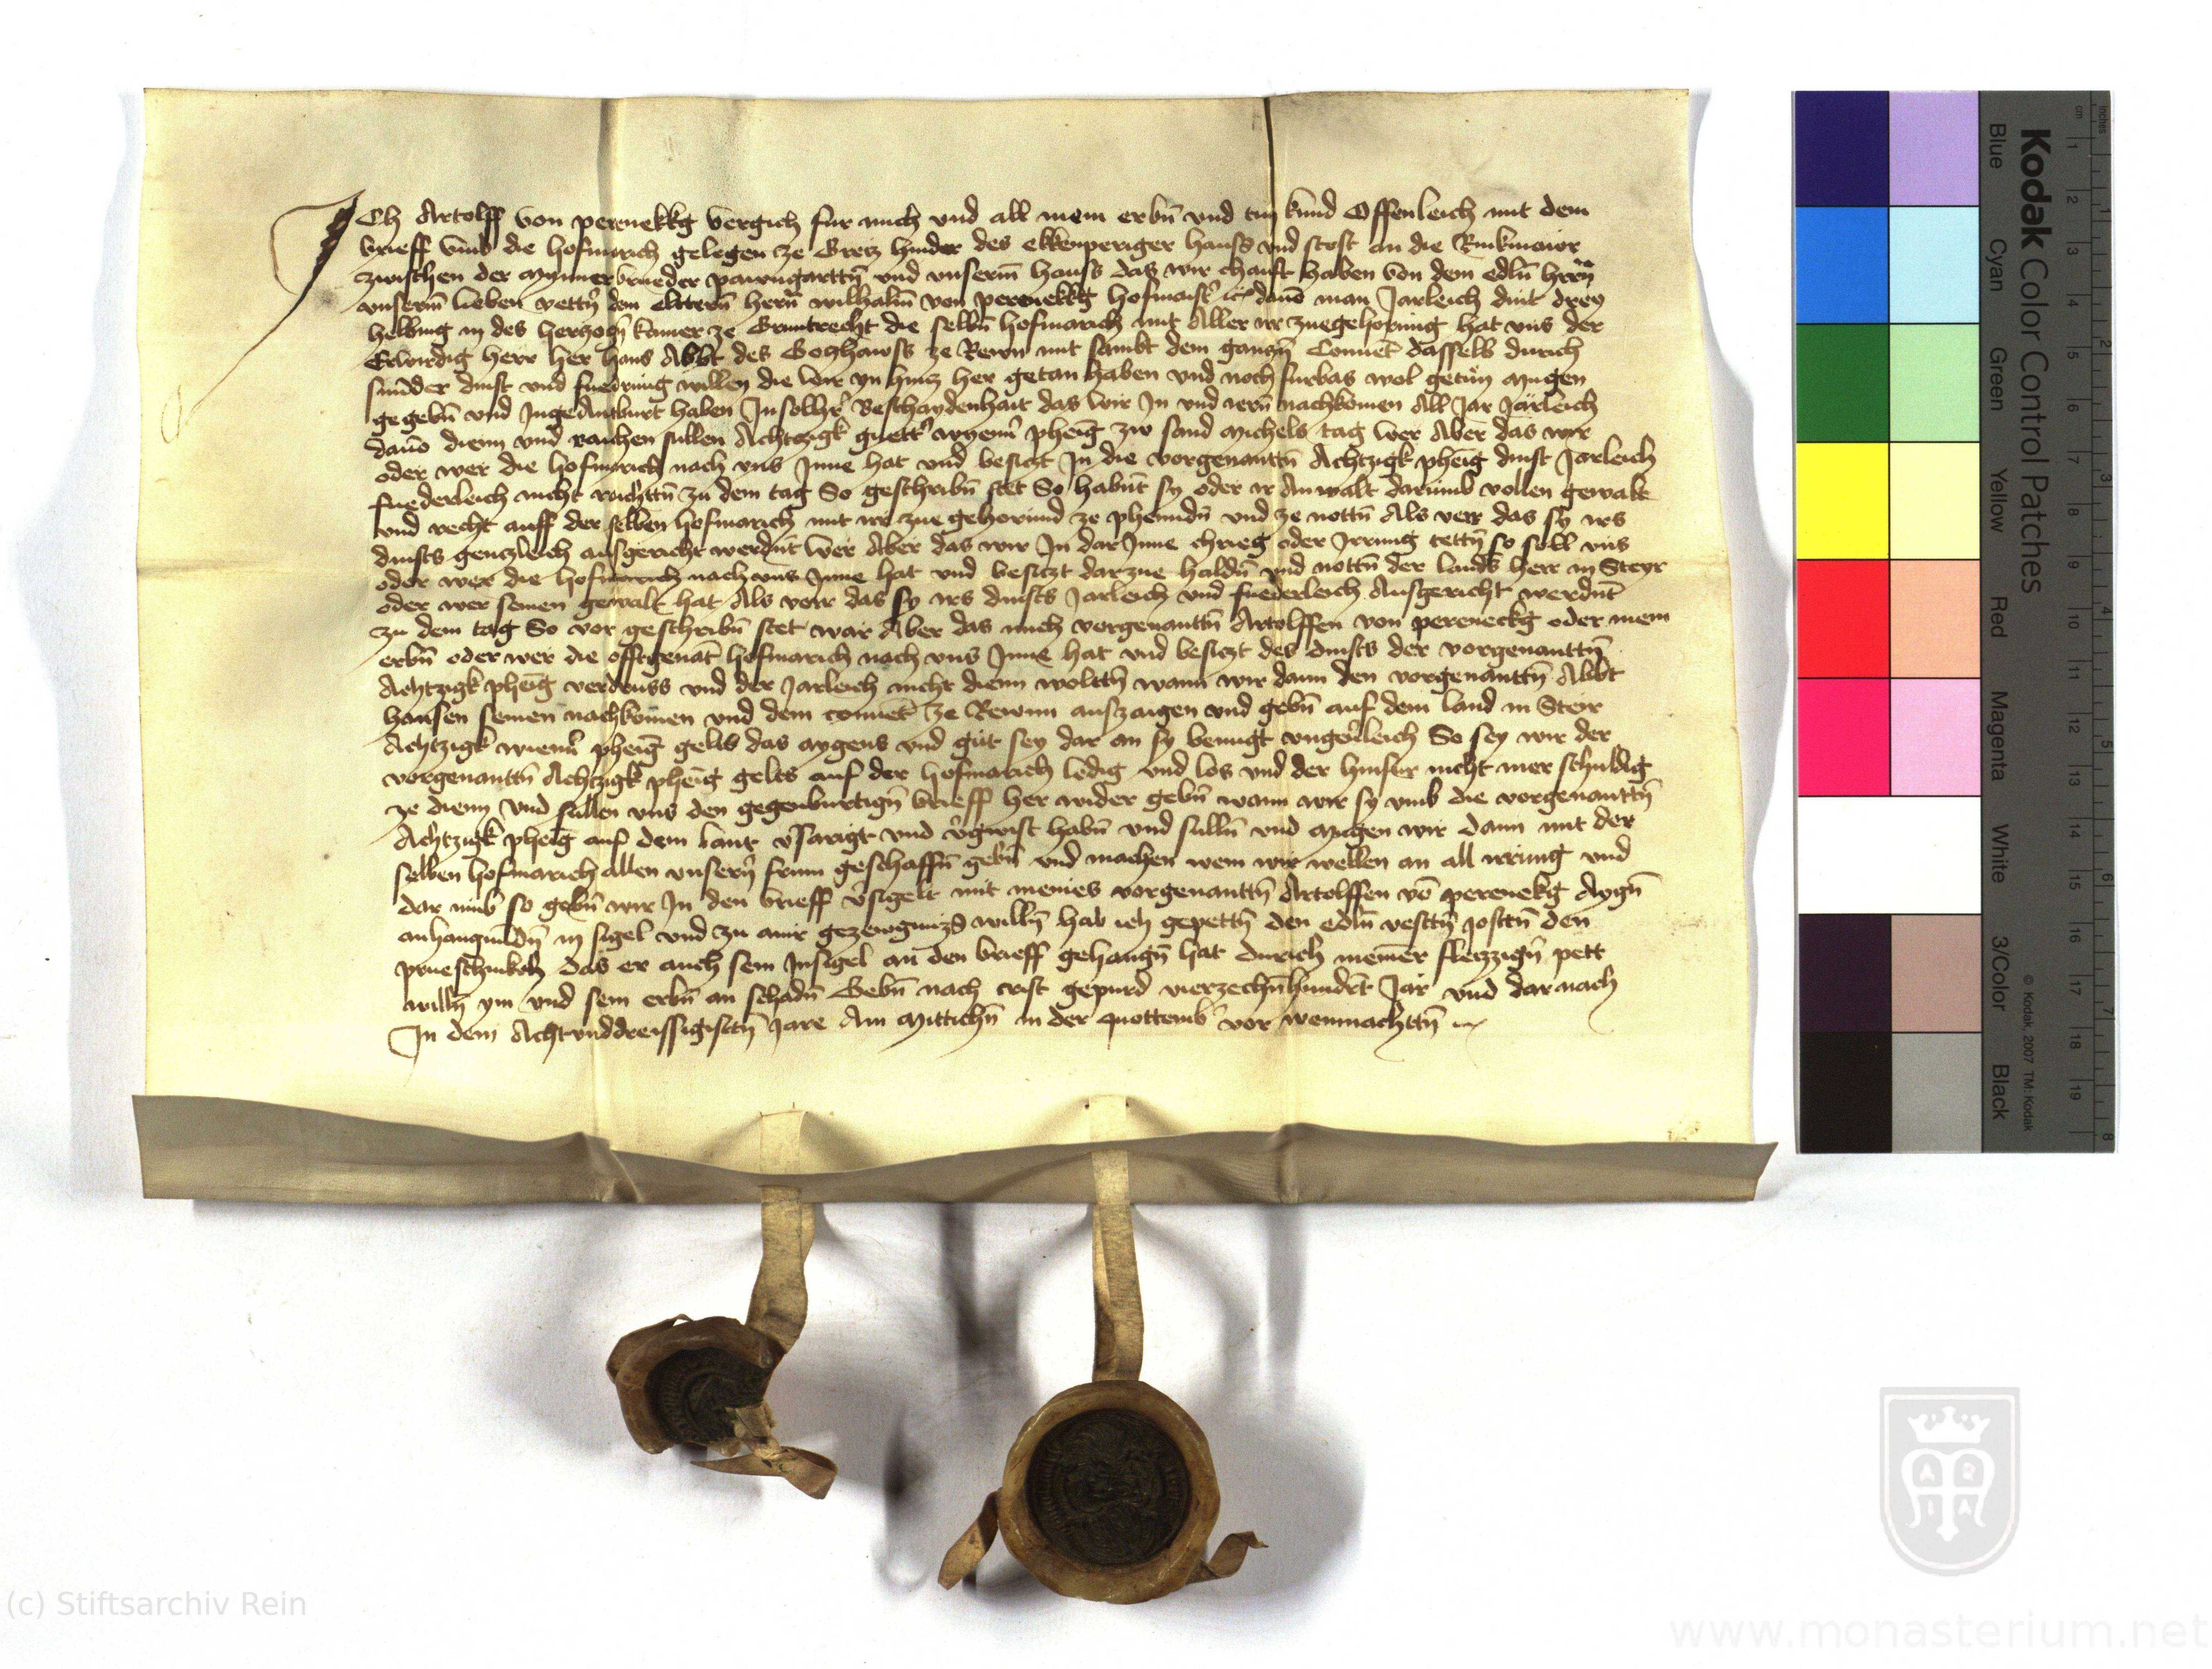 Ich Artolff von pernekkg vergich fur mich vnd all mein erbn̄ vnd tun kund Offenleich mit dem
brieff vmb die hofmarich gelegen ze Gretz hinder des ekkenperiger hauss vnd stost an die Rinkmawr
zwischen der mynnerbrueder pawngarttn̄ vnd vnserm̄ hauss das wir chauft haben von dem edln̄ herrn̄
vnserm̄ lieben vettn̄ dem elttern̄ hern̄ wilhalm̄ von pernekkg hofmaist̉ dauō man Jarleich dint drey
helbing in des herzogn̄ kamer ze Gruntrecht die selbn̄ hofmarich mit Aller irr zuegehorung hat vns der
Erwirdig herr her hans Abbt des Gotzhawss ze Rewn mit sambt dem ganczn̄ Conuēt dasselb durich
sunder dinst vnd fuedrung willen die wir yn hincz her getan haben vnd noch furbas wol getun mugen
gegebn̄ vnd IngeAntburt haben In solher̉ Beschaydenhait das wir In vnd iren̄ nachkomen All Jar Järleich
dauō dienn vnd raichen sullen Achtzigk guett̉ wyenn̉ phēig zw sand michels tag wer Aber das wir
oder wer die hofmarich nach vns Jnne hat vnd besiczt In die vorgenanttn̄ Achtzigk phēig dinst Jarleich
fuederleich nicht raichttn̄ zu dem tag So geschribn̄ stet So habnt sy oder ir Anwalt darumb vollen gewalt
vnd recht auff der selben hofmarich mit irr zue gehorund ze phenndn̄ vnd ze nottn̄ Als verr das sy irs
dinsts genczleich ausgericht werdnt wer Aber das wir In darJnne chrieg oder Jrrung tettn̄ so soll vns
oder wer die hofmarich nach vns Jnne hat vnd besiczt darzue haldn̄ vnd nottn̄ der lands herr in Steyr
oder wer seinen gewalt hat Als verr das sy irs dinsts Jarleich vnd fuederleich Ausgericht werdnt
zu dem tag So vor geschribn̄ stet wär Aber das mich vorgenanttn̄ Artolffen von perneckg oder mein
erbn̄ oder wer die offtgenāt hofmarich nach vns Jnne hat vnd besiczt des dinsts der vorgenanttn̄
Achtzigk phēig verdruss vnd der Jarleich nicht dienn woltn̄ wann wir dann den vorgenanttn̄ Abbt
hansen seinen nachkomen vnd dem conuēt ze Rewnn auszaigen vnd gebn̄ auf dem land in Steir
Achtzigk wienn̉ phēig gelts das aygens vnd gut sey dar an sy benugt vngeu̓leich So sey wir der
vorgenanttn̄ Achtzigk phēig gelts auf der hofmarich ledig vnd los vnd der hinfur nicht mer schuldig
ze dienn vnd sullen vns den gegenburtign̄ brieff her wider gebn̄ wann wir sy vmb die vorgenanttn̄
Achtzigk phēig auf dem lant v̓saragt vnd v̓gwist habn̄ vnd sulln̄ vnd mugen wir dann mit der
selben hofmarich allen vnsern̄ frum geschaffn̄ gebn̄ vnd machen wem wir wellen an all irrung vnd
dar umb so gebn̄ wir In den brieff v̓sigelt mit meines vorgenanttn̄ Artolffen vō pernekg Aygn̄
anhangundn̄ in sigel vnd zu ainr gezewgnuzs willn̄ hab ich gepettn̄ den edln̄ vesttn̄ Josttn̄ den
prueschinkchn̄ das er auch sein Jnsigel an den brieff gehangn̄ hat durich meiner fleizzign̄ pett
willn̄ ym vnd sein erbn̄ an schadn̄ Gebn̄ nach crist gepurd vierzechn̄hundrt Jar vnd dar nach
In dem Achtvnddreissigistn̄ Jare Am Mittichn̄ in der quottemb̉ vor weinnachttn̄
Kodak Color Control Patches
Blue Cyan Green Yellow Red Magenta White 3/Color Black
© Kodak, 2007 TM: Kodak
cm 1 2 3 4 5 6 7 8 9 10 11 12 13 14 15 16 17 18 19
inches 1 2 3 4 5 6 7 8
(c) Stiftsarchiv Rein
www.monasterium.net